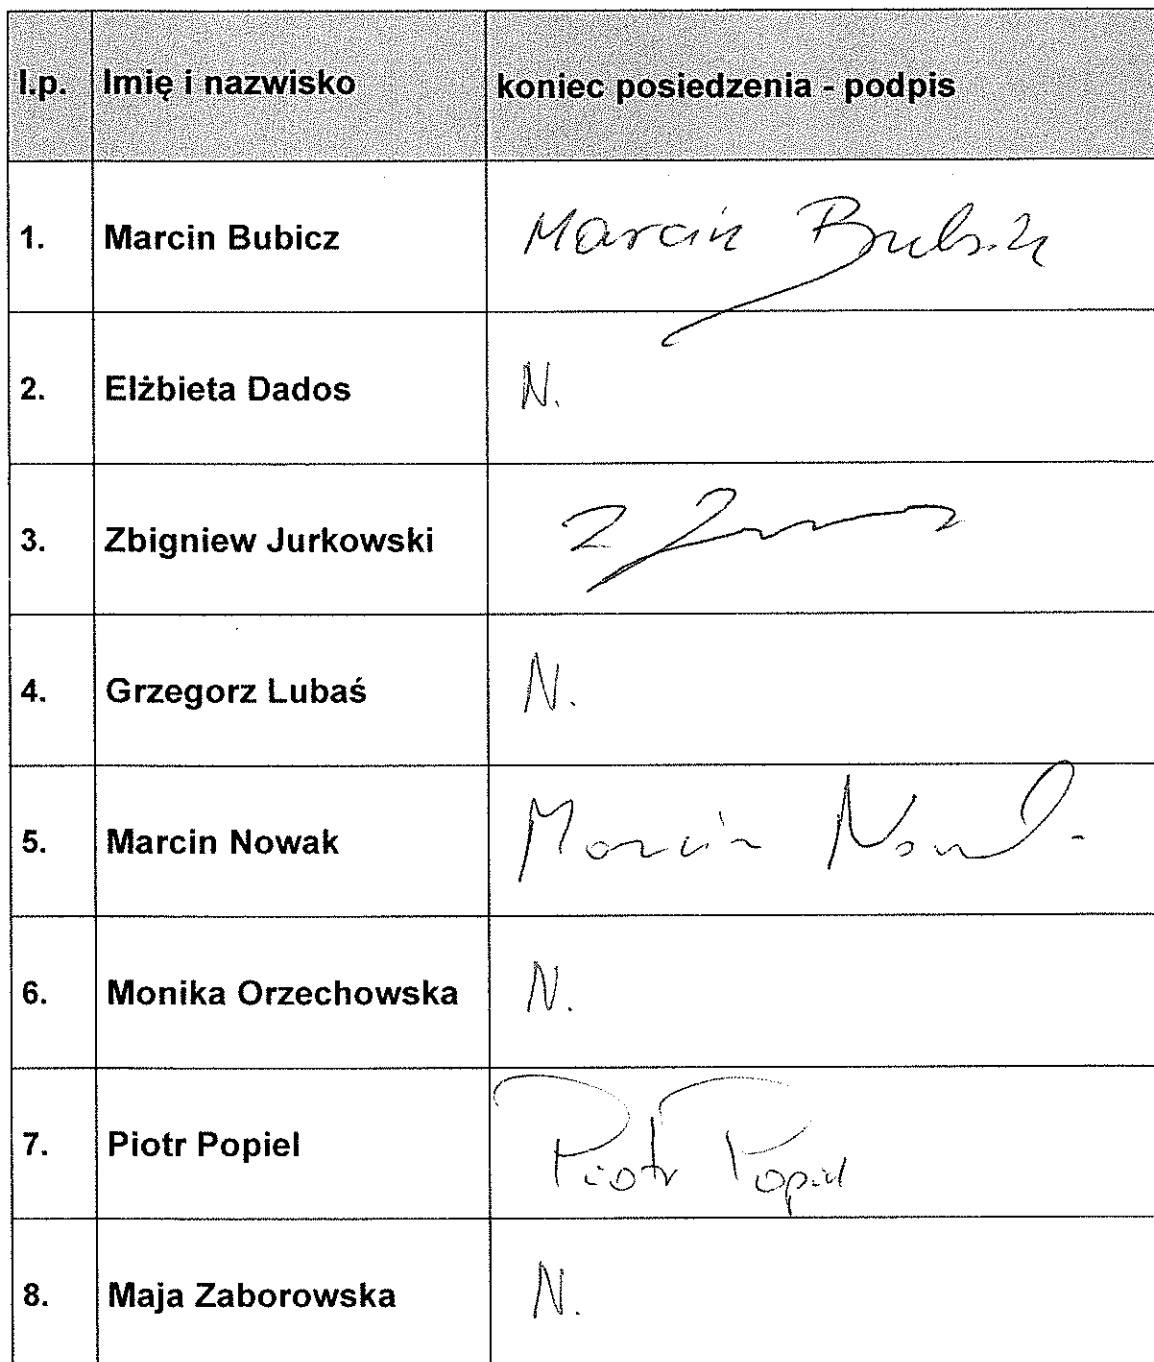 l.p. Imię i nazwisko koniec posiedzenia - podpis
1. Marcin Bubicz Marcin Bubicz
2. Elżbieta Dados N.
3. Zbigniew Jurkowski Z
4. Grzegorz Lubaś N.
5. Marcin Nowak Marcin Nowak
6. Monika Orzechowska N.
7. Piotr Popiel Piotr Popiel
8. Maja Zaborowska N.